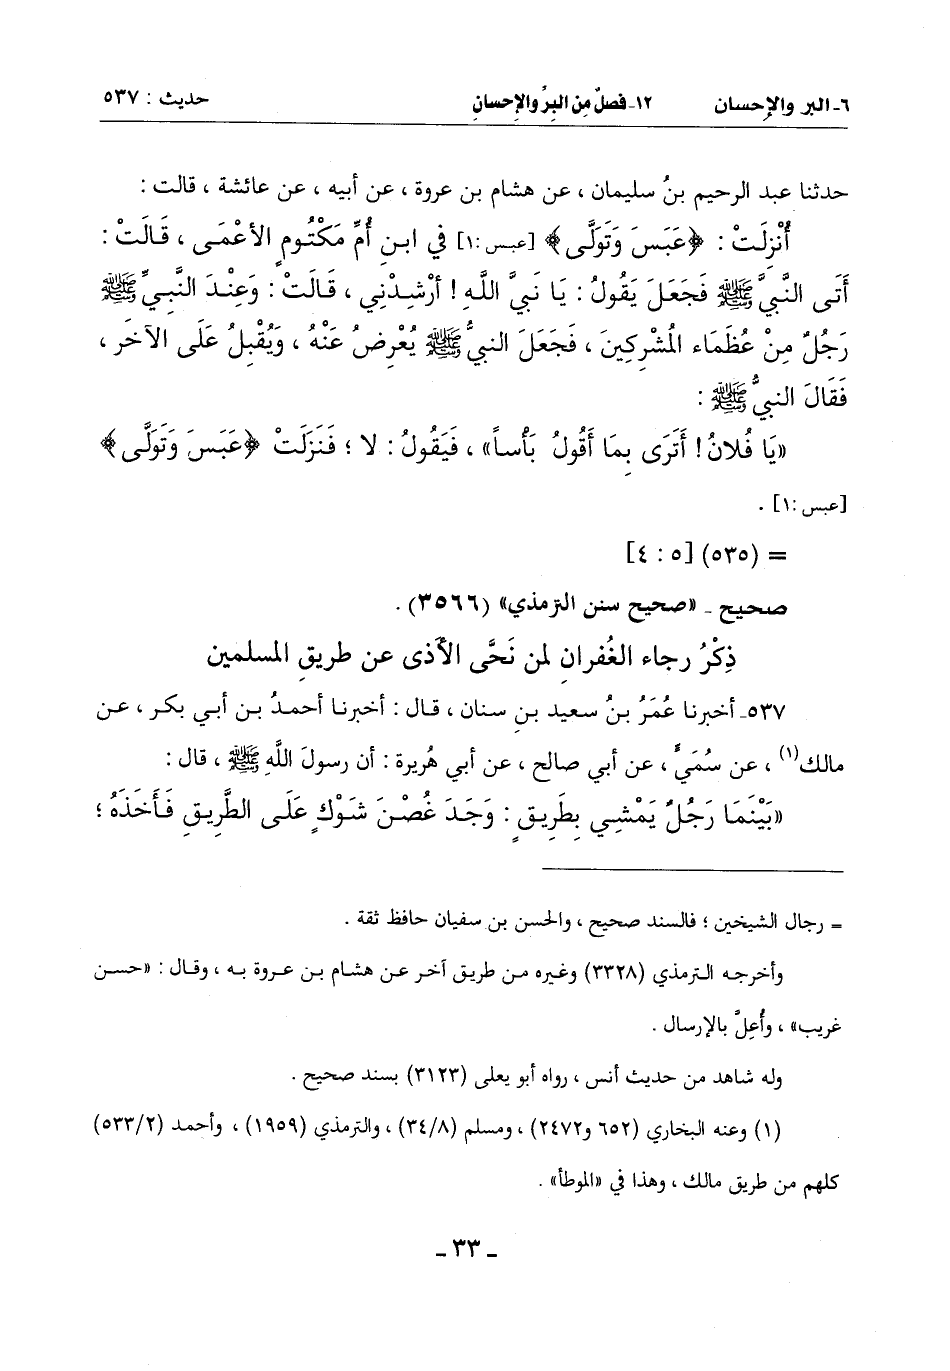 ٦- البر والإحسان ١٢- فصلٌ مِن البِرِّ والإحسانِ حديث : ٥٣٧
حدثنا عبد الرحيم بنُ سليمان ، عن هشام بن عروة ، عن أبيه ، عن عائشة ، قالت :
أُنْزِلَتْ : ﴿عَبَسَ وَتَوَلَّى﴾ [عبس :١] في ابن أُمِّ مَكْتُومٍ الأَعْمَى ، قَالَتْ :
أَتَى النَّبيَّ ﷺ فَجَعَلَ يَقُولُ : يَا نَبيَّ اللَّهِ ! أَرْشِدْنِي ، قَالَتْ : وَعِنْدَ النَّبِيِّ ﷺ
رَجُلٌ مِنْ عُظَمَاءِ المُشْرِكِينَ ، فَجَعَلَ النبيُّ ﷺ يُعْرِضُ عَنْهُ ، وَيُقْبِلُ عَلَى الآخَرِ ،
فَقَالَ النبيُّ ﷺ :
«يَا فُلانُ ! أَتَرَى بِمَا أَقُولُ بَأْساً» ، فَيَقُولُ : لا ؛ فَنَزَلَتْ ﴿عَبَسَ وَتَوَلَّى﴾
[عبس :١] .
= (٥٣٥) [٥ : ٤]
صحيح ـ «صحيح سنن الترمذي» (٣٥٦٦) .
ذِكْرُ رجاء الغُفرانِ لمن نَحَّى الأَذى عن طريقِ المسلمين
٥٣٧ـ أخبرنا عُمَرُ بنُ سعيد بنِ سنان ، قال : أخبرنا أحمدُ بن أبي بكر ، عن
مالك(١) ، عن سُمَيٍّ ، عن أبي صالح ، عن أبي هُريرة : أن رسولَ اللَّهِ ﷺ ، قال :
«بَيْنَمَا رَجُلٌ يَمْشِي بِطَرِيقٍ : وَجَدَ غُصْنَ شَوْكٍ عَلَى الطَّرِيقِ فَأَخَذَهُ ؛
= رجال الشيخين ؛ فالسند صحيح ، والحسن بن سفيان حافظ ثقة .
وأخرجه الترمذي (٣٣٢٨) وغيره من طريق آخر عن هشام بن عروة به ، وقال : «حسن
غريب» ، وأُعِلَّ بالإرسال .
وله شاهد من حديث أنس ، رواه أبو يعلى (٣١٢٣) بسند صحيح .
(١) وعنه البخاري (٦٥٢ و٢٤٧٢) ، ومسلم (٣٤/٨) ، والترمذي (١٩٥٩) ، وأحمد (٥٣٣/٢)
كلهم من طريق مالك ، وهذا في «الموطأ» .
ـ ٣٣ ـ